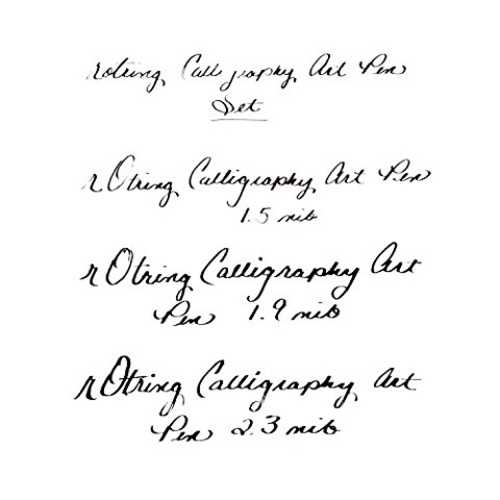 rotring Calligraphy Art Pen
Set
rOtring Calligraphy Art Pen
1.5 nib
rOtring Calligraphy Art
Pen 1.9 nib
rOtring Calligraphy Art
Pen 2.3 nib